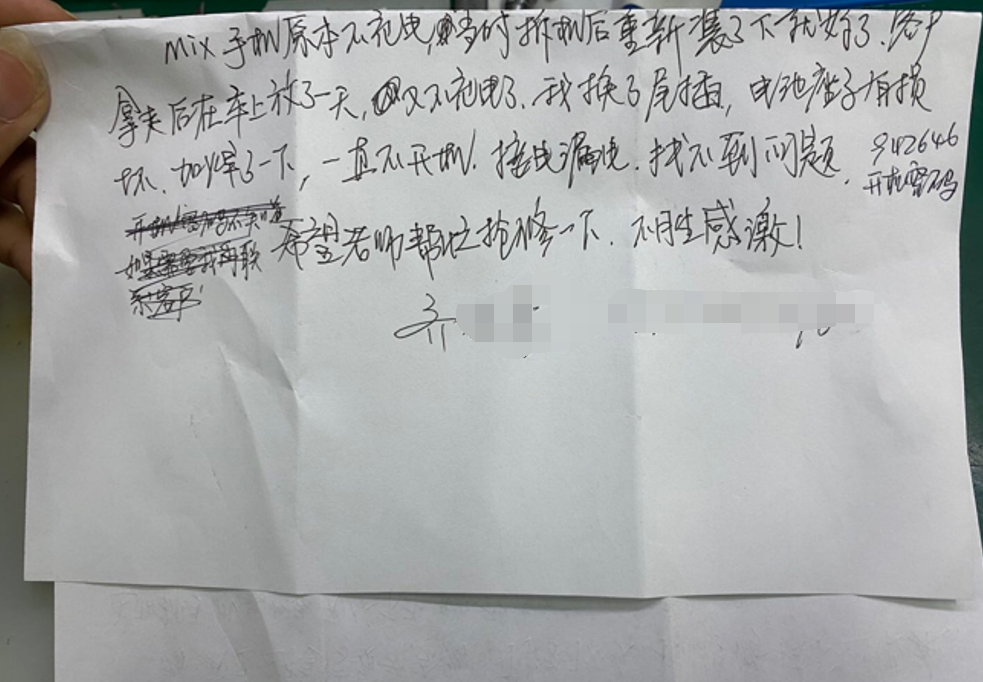 mix手机原本不充电,当时拆机后重新装了下就好了.客户
拿走后在车上放了一天,又不充电了.我换了尾插,电池座子有损
坏.加焊了一下,一直不开机.接电漏电.找不到问题.
942646
开机密码
希望老师帮忙抢修一下.不胜感激!
齐